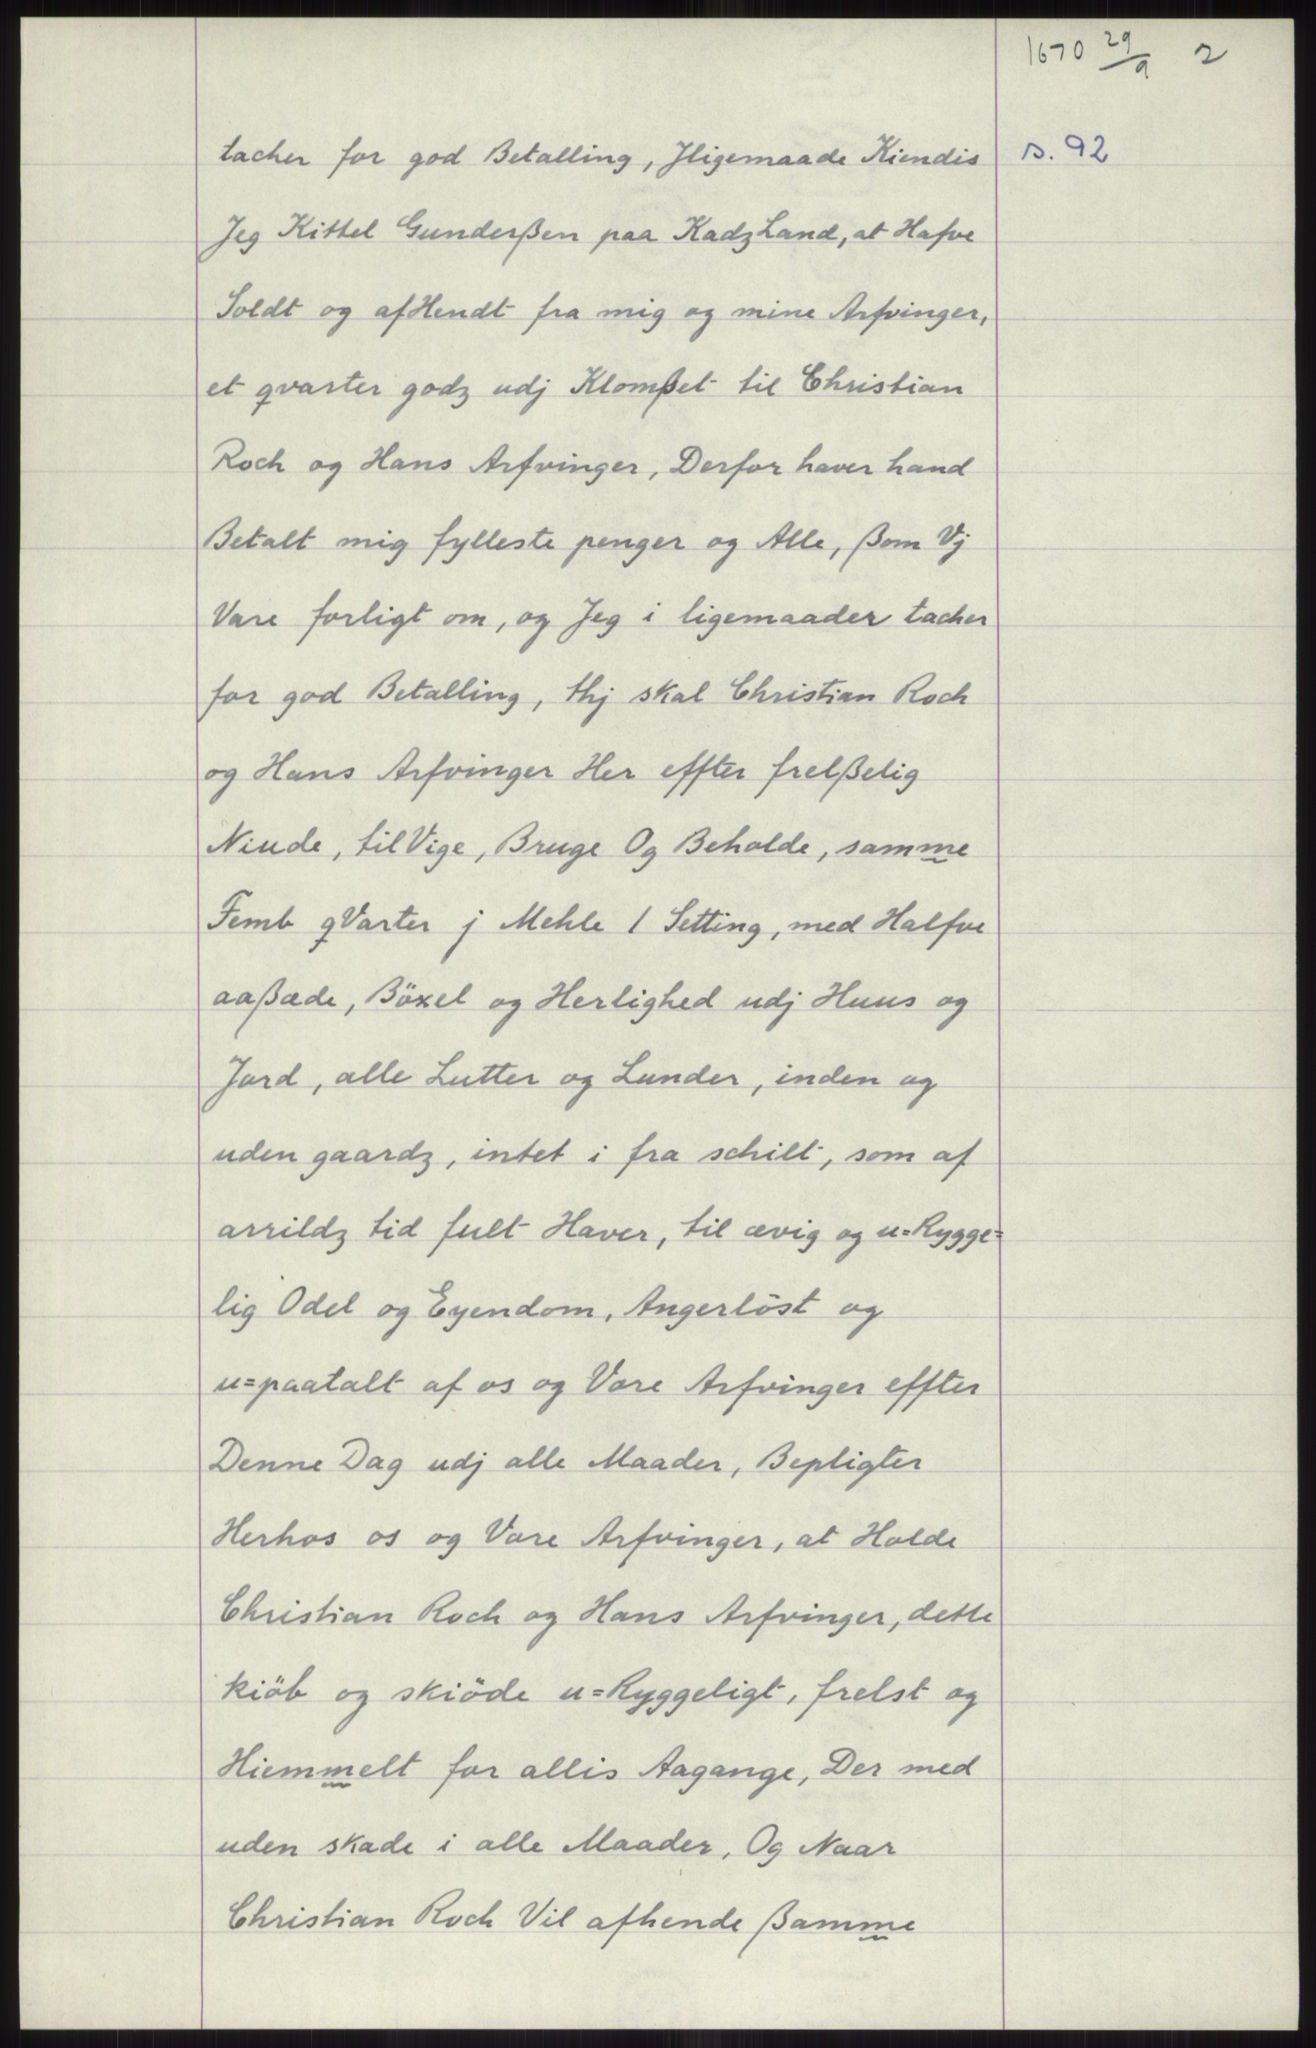 1670 29/9 2
tacher for god Betalling, Jligemaade Kiendis s. 92
Jeg Kittel Gunderßen paa KadzLand, at Hafve
Soldt og afHendt fra mig og mine Arfvinger,
et qvarter godz udj Klomßet til Christian
Roch og Hans Arfvinger, Derfor haver hand
Betalt mig fylleste penger og Alle, ßom Vj
Vare forligt om, og Jeg i ligemaader tacher
for god Betalling, thj skal Christian Roch
og Hans Arfvinger Her effter frelßelig
Niude, tilVige, Bruge Og Beholde, samme
Femb qVarter j Mehle / Setting, med Halfve
aaßæde, Böxel og Herlighed udj Huus og
Jord, alle Lutter og Lunder, inden og
uden gaardz, intet i fra schilt, som af
arrildz tid fult Haver, til ævig og u=Rygge=
lig Odel og Eyendom, Angerlöst og
u=paatalt af os og Vore Arfvinger effter
Denne Dag udj alle Maader, Bepligter
Herhos os og Vore Arfvinger, at Holde
Christian Roch og Hans Arfvinger, dette
kiöb og skiöde u=Ryggeligt, frelst og
Hiemmelt for allis Aagange, Der med
uden skade i alle Maader, Og Naar
Christian Roch Vil afhende ßamme